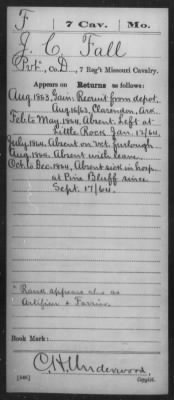 F 7 Cav. Mo.
J. C. Fall
Pvt., Co. D, 7 Reg't Missouri Cavalry.
Appears on Returns as follows:
Aug. 1863, Gain, Recruit from depot,
Aug 16/63, Clarendon, Ark.
Feb to May, 1864, Absent. Left at
Little Rock Jan. 12/64.
July 1864, Absent on Vet. furlough
Aug. 1864, Absent with leave
Oct. to Dec. 1864, Absent sick in hosp.
at Pine Bluff since
Sept. 17/64.
Rank appears also as
Artificer & Farrier.
Book Mark:
C. H. Underwood,
(546) Copyist.